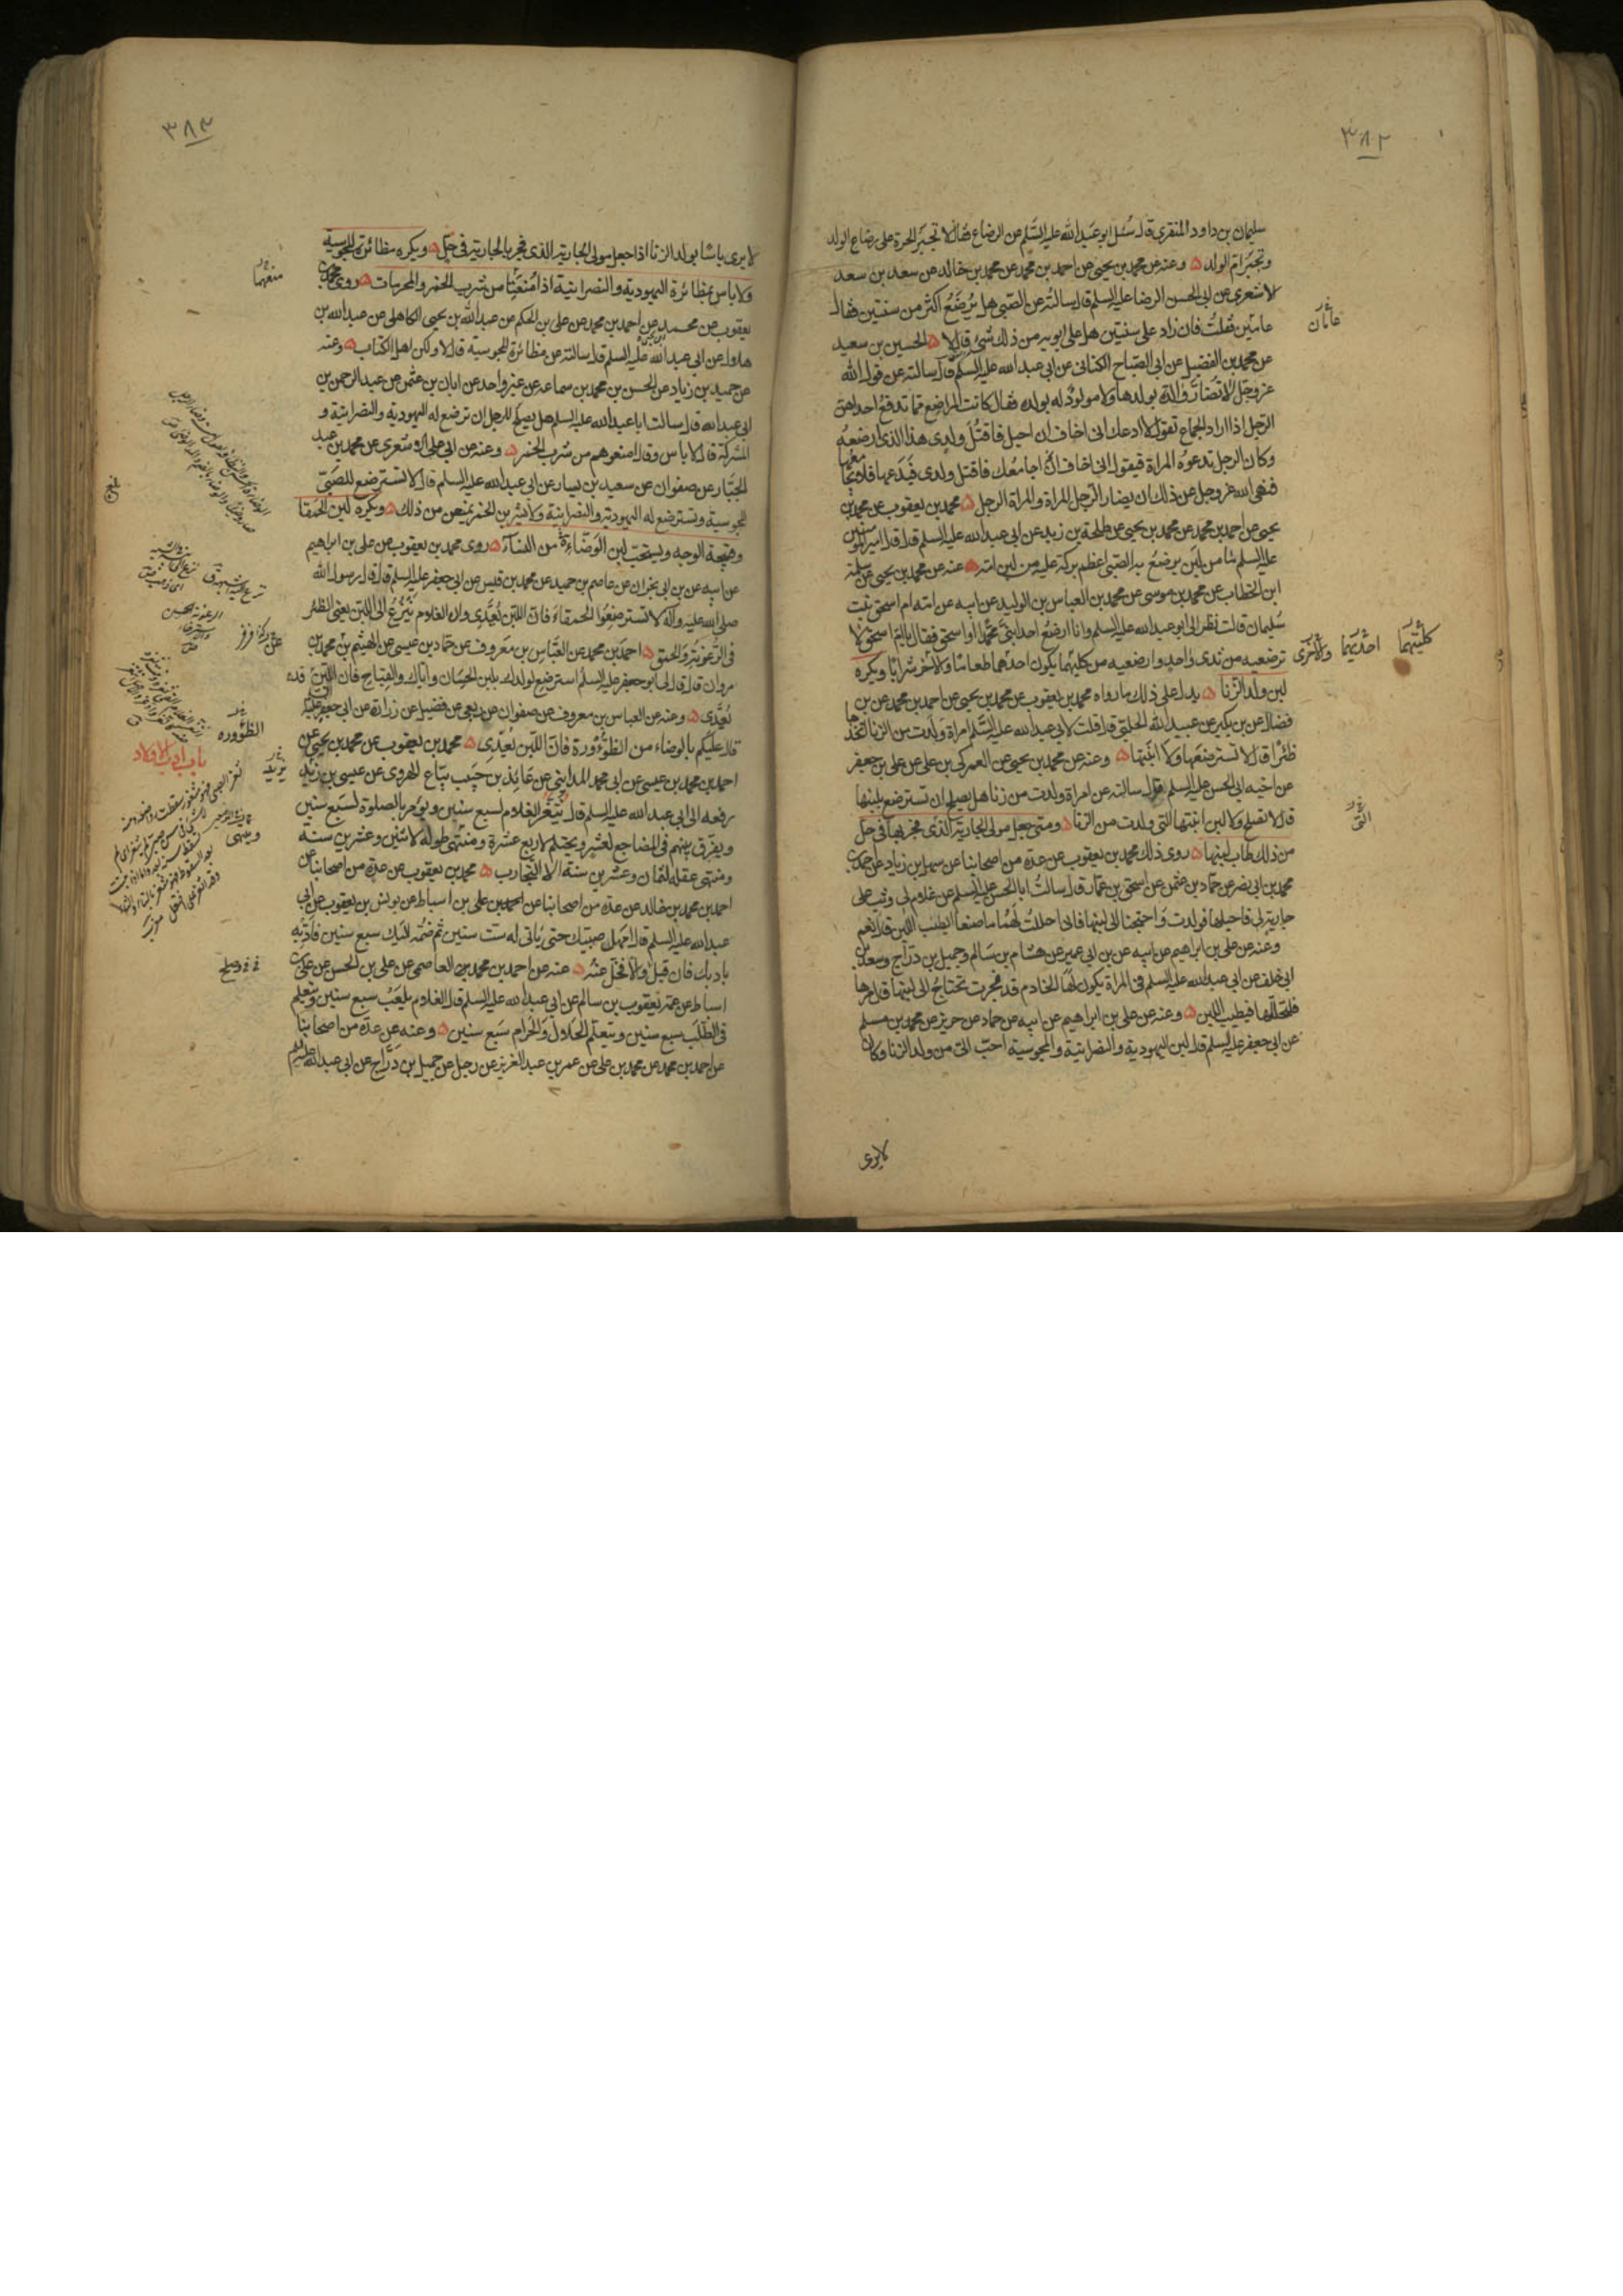 ٣٨٢
سليمان بن داود المنقري قال سئل ابو عبد الله عليه السلم عن الرضاع فقال لا تجبر الحرة على رضاع الولد
وتجبر ام الولد ه وعنه عن محمد بن يحيى عن احمد بن محمد عن محمد بن خالد عن سعد بن سعد
الاشعري عن ابي الحسن الرضا عليه السلم قال سالته عن الصبي هل يرضع اكثر من سنتين فقال
عامين فقلت فان زاد على سنتين هل على ابويه من ذلك شئ قال لا ه الحسين بن سعيد
عن محمد بن الفضيل عن ابي الصباح الكناني عن ابي عبد الله عليه السلم قال سالته عن قول الله
عز وجل لا تضار والدة بولدها ولا مولود له بولده فقال كانت المراضع مما تدفع احداهن
الرجل اذا اراد الجماع تقول لا ادعك اني اخاف ان احبل فاقتل ولدي هذا الذي ارضعه
وكان الرجل تدعوه المراة فيقول اني اخاف ان اجامعك فاقتل ولدي فيدعها فلا يجامعها
فنهى الله عز وجل عن ذلك ان يضار الرجل المراة والمراة الرجل ه محمد بن يعقوب عن محمد بن
يحيى عن احمد بن محمد عن محمد بن يحيى عن طلحة بن زيد عن ابي عبد الله عليه السلم قال قال امير المؤمنين
عليه السلم ما من لبن يرضع به الصبي اعظم بركة عليه من لبن امه ه عنه عن محمد بن يحيى عن سلمة
ابن الخطاب عن محمد بن موسى عن محمد بن العباس بن الوليد عن ابيه عن امه ام اسحق بنت
سليمان قالت نظر الي ابو عبد الله عليه السلم وانا ارضع احد ابني محمدا او اسحق فقال يا ام اسحق لا
ترضعيه من ثدي واحد وارضعيه من كليهما يكون احدهما طعاما والاخر شرابا ويكره
لبن ولد الزنا ه يدل على ذلك ما رواه محمد بن يعقوب عن محمد بن يحيى عن احمد بن محمد عن بن
فضال عن بن بكير عن عبيد الله الحلبي قال قلت لابي عبد الله عليه السلم امراة ولدت من الزنا اتخذها
ظئرا قال لا تسترضعها ولا ابنتها ه وعنه عن محمد بن يحيى عن العمركي بن علي عن علي بن جعفر
عن اخيه ابي الحسن عليه السلم قال سالته عن امراة ولدت من زنا هل يصلح ان تسترضع بلبنها
قال لا تصلح ولا لبن ابنتها التي ولدت من الزنا ه ومتى جعل مولى الجارية الذي فجر بها في حل
من ذلك طاب لبنها ه روى ذلك محمد بن يعقوب عن عدة من اصحابنا عن سهل بن زياد عن احمد بن
محمد بن ابي نصر عن حماد بن عثمن عن اسحق بن عمار قال سالت ابا الحسن عليه السلم عن غلام لي وثب على
جارية لي فاحبلها فولدت واحتجنا الى لبنها فاني احللت لهما ما صنعا ايطيب اللبن قال نعم
وعنه عن علي بن ابراهيم عن ابيه عن بن ابي عمير عن هشام بن سالم وجميل بن دراج وسعد بن
ابي خلف عن ابي عبد الله عليه السلم في المراة يكون لها الخادم قد فجرت تحتاج الى لبنها قال مرها
فلتحللها فيطيب اللبن ه وعنه عن علي بن ابراهيم عن ابيه عن حماد عن حريز عن محمد بن مسلم
عن ابي جعفر عليه السلم قال لبن اليهودية والنصرانية والمجوسية احب الي من ولد الزنا وكان
عامان
كليتهما
احديهما
والاخرى
التي
لا يرى
٣٨٣
لا يرى باسا بولد الزنا اذا جعل مولى الجارية الذي فجر بالجارية في حل ه ويكره مظائرة المجوسية
ولا باس بمظائرة اليهودية والنصرانية اذا منعتا من شرب الخمر والمحرمات ه روى محمد بن
يعقوب عن محمد بن يحيى عن احمد بن محمد عن علي بن الحكم عن عبد الله بن يحيى الكاهلي عن عبد الله بن
هلال عن ابي عبد الله عليه السلم قال سالته عن مظائرة المجوسية قال لا ولكن اهل الكتاب ه وعنه
عن حميد بن زياد عن الحسن بن محمد بن سماعة عن غير واحد عن ابان بن عثمن عن عبد الرحمن بن
ابي عبد الله قال سالت ابا عبد الله عليه السلم هل يصلح للرجل ان ترضع له اليهودية والنصرانية و
المشركة قال لا باس وقال امنعوهم من شرب الخمر ه وعنه عن ابي علي الاشعري عن محمد بن عبد
الجبار عن صفوان عن سعيد بن يسار عن ابي عبد الله عليه السلم قال لا تسترضع للصبي
المجوسية وتسترضع له اليهودية والنصرانية ولا يشربن الخمر يمنعن من ذلك ه ويكره لبن الحمقا
وقبيحة الوجه ويستحب لبن الوضاءة من النساء ه روى محمد بن يعقوب عن علي بن ابراهيم
عن ابيه عن بن ابي نجران عن عاصم بن حميد عن محمد بن قيس عن ابي جعفر عليه السلم قال قال رسول الله
صلى الله عليه واله لا تسترضعوا الحمقاء فان اللبن يعدي وان الغلام ينزع الى اللبن يعني الظئر
في الرعونة والحمق ه احمد بن محمد عن العباس بن معروف عن حماد بن عيسى عن الهيثم بن محمد بن
مروان قال قال لي ابو جعفر عليه السلم استرضع لولدك بلبن الحسان واياك والقباح فان اللبن قد
يعدي ه وعنه عن العباس بن معروف عن صفوان عن ربعي عن فضيل عن زرارة عن ابي جعفر عليه السلم
قال عليكم بالوضاء من الظؤورة فان اللبن يعدي ه محمد بن يعقوب عن محمد بن يحيى عن
احمد بن محمد بن عيسى عن ابي محمد المدايني عن عايذ بن حبيب بياع الهروي عن عيسى بن زيد
رفعه الى ابي عبد الله عليه السلم قال يثغر الغلام لسبع سنين ويؤمر بالصلوة لسبع سنين
ويفرق بينهم في المضاجع لعشر ويحتلم لاربع عشرة ومنتهى طوله لاثنين وعشرين سنة
ومنتهى عقله لثمان وعشرين سنة الا التجارب ه محمد بن يعقوب عن عدة من اصحابنا عن
احمد بن محمد بن خالد عن عدة من اصحابنا عن علي بن اسباط عن يونس بن يعقوب عن ابي
عبد الله عليه السلم قال امهل صبيك حتى ياتي له ست سنين ثم ضمه اليك سبع سنين فادبه
بادبك فان قبل والا فخل عنه ه عنه عن احمد بن محمد بن العاصمي عن علي بن الحسن عن علي بن
اسباط عن عمه يعقوب بن سالم عن ابي عبد الله عليه السلم قال الغلام يلعب سبع سنين ويتعلم
في الكتاب سبع سنين ويتعلم الحلال والحرام سبع سنين ه وعنه عن عدة من اصحابنا
عن احمد بن محمد عن محمد بن علي عن عمر بن عبد العزيز عن رجل عن جميل بن دراج عن ابي عبد الله عليه السلم
منعهما
الظؤورة
باب ادب الاولاد
يزيد